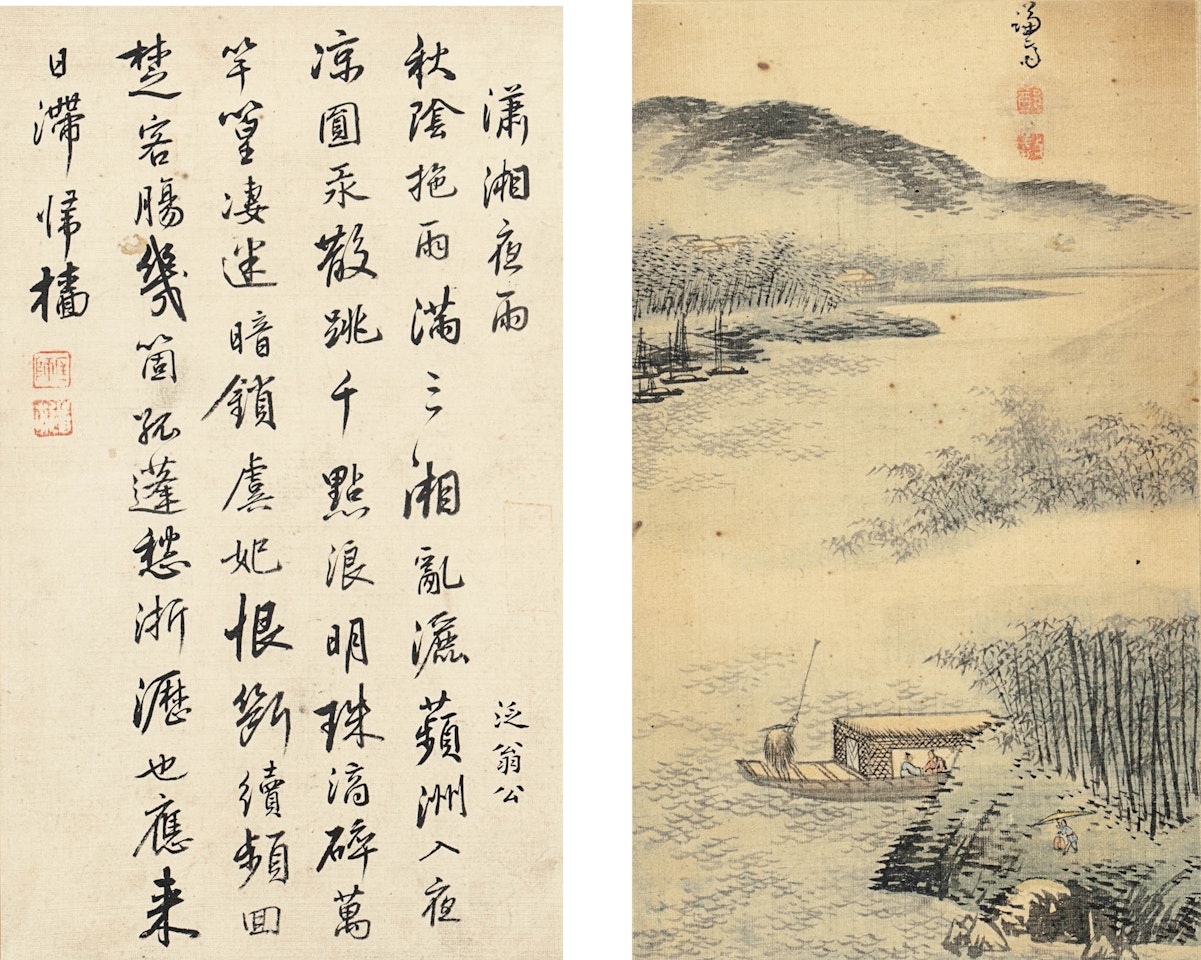 瀟湘夜雨
泛翁公
秋陰拖雨滿三湘亂灑蘋洲入夜
凉圓汞散跳千點浪明珠滴碎萬
竿篁凄迷暗鎖虞妃恨斷續頻囬
楚客腸幾箇孤蓬愁淅瀝也應来
日滯帰檣
謙齋